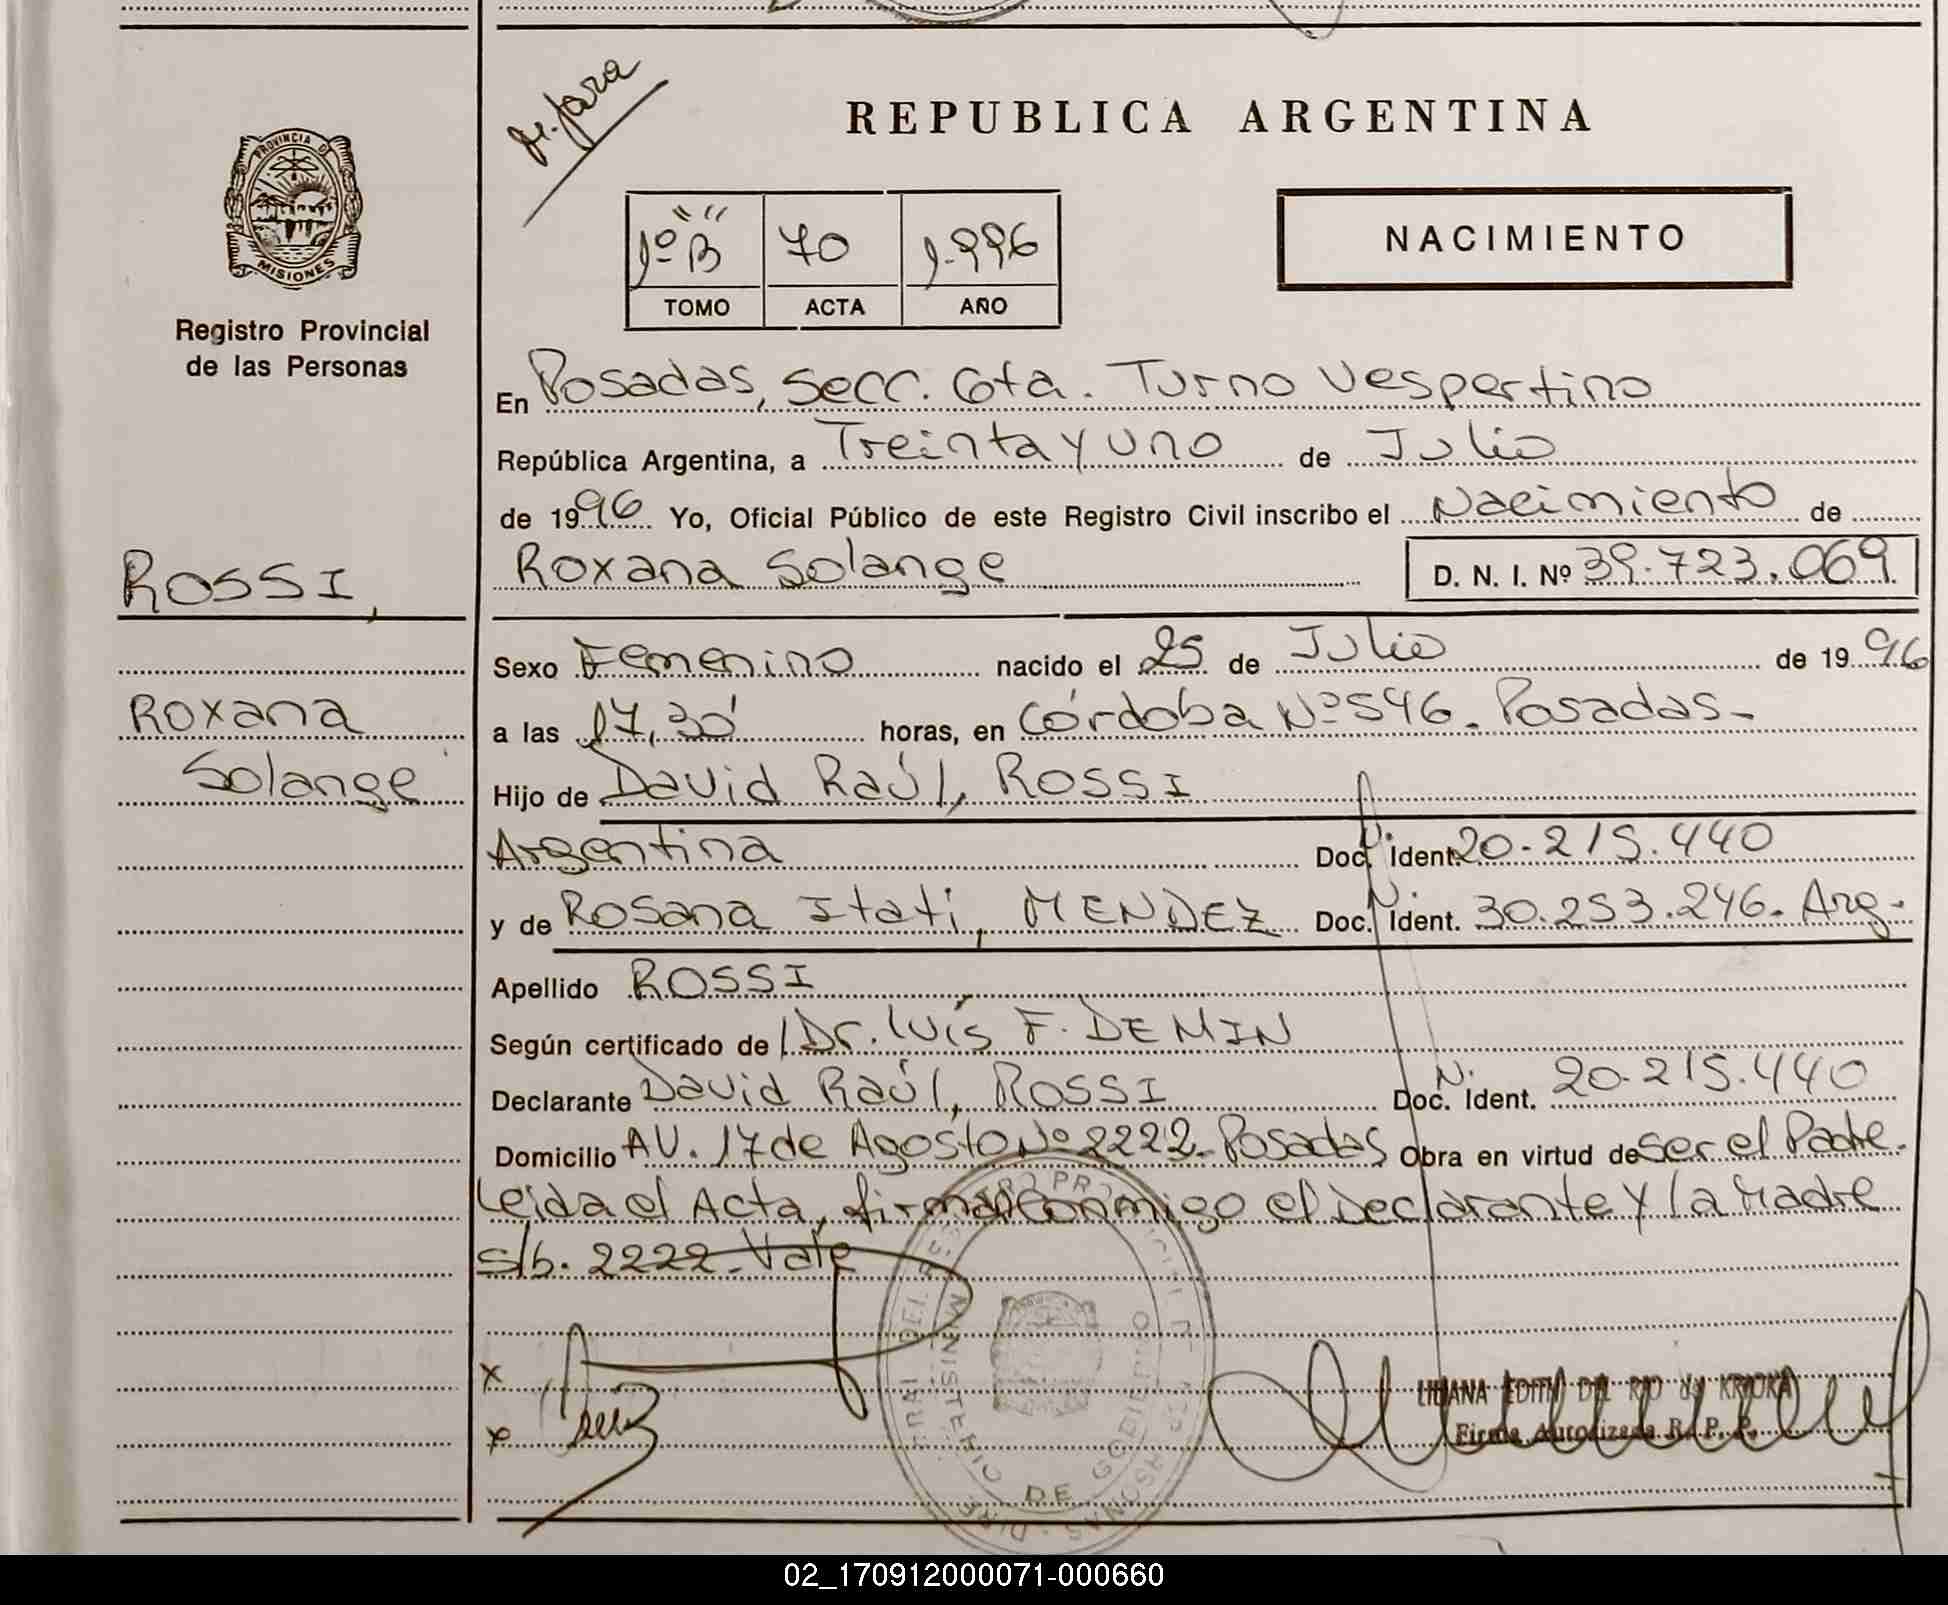 M. Jara
REPUBLICA ARGENTINA
PROVINCIA DE
MISIONES
Registro Provincial
de las Personas
1º "B" 70 1.996
TOMO ACTA AÑO
NACIMIENTO
En Posadas, Secc. 6ta. Turno Vespertino
República Argentina, a Treinta y uno de Julio
de 1996 Yo, Oficial Público de este Registro Civil inscribo el Nacimiento de
Roxana Solange D. N. I. Nº 39.723.069
ROSSI,
Roxana
Solange
Sexo Femenino nacido el 25 de Julio de 1996
a las 17,30 horas, en Córdoba Nº 546. Posadas-
Hijo de David Raúl, ROSSI
Argentina Doc. N. Ident. 20.215.440
y de Rosana Itati, MENDEZ Doc. N. Ident. 30.253.246. Arg.
Apellido ROSSI
Según certificado de Dr. Luís F. DEMIN
Declarante David Raúl, ROSSI Doc. N. Ident. 20.215.440
Domicilio AV. 17 de Agosto Nº 2222. Posadas Obra en virtud de ser el Padre.
Leida el Acta, firman conmigo el Declarante y la Madre
s/b. 2222. Vale
x
x
MINISTERIO DE GOBIERNO
LILIANA EDITH DEL RIO de KRIOKA
Firma Autorizada R. P. P.
02_170912000071-000660